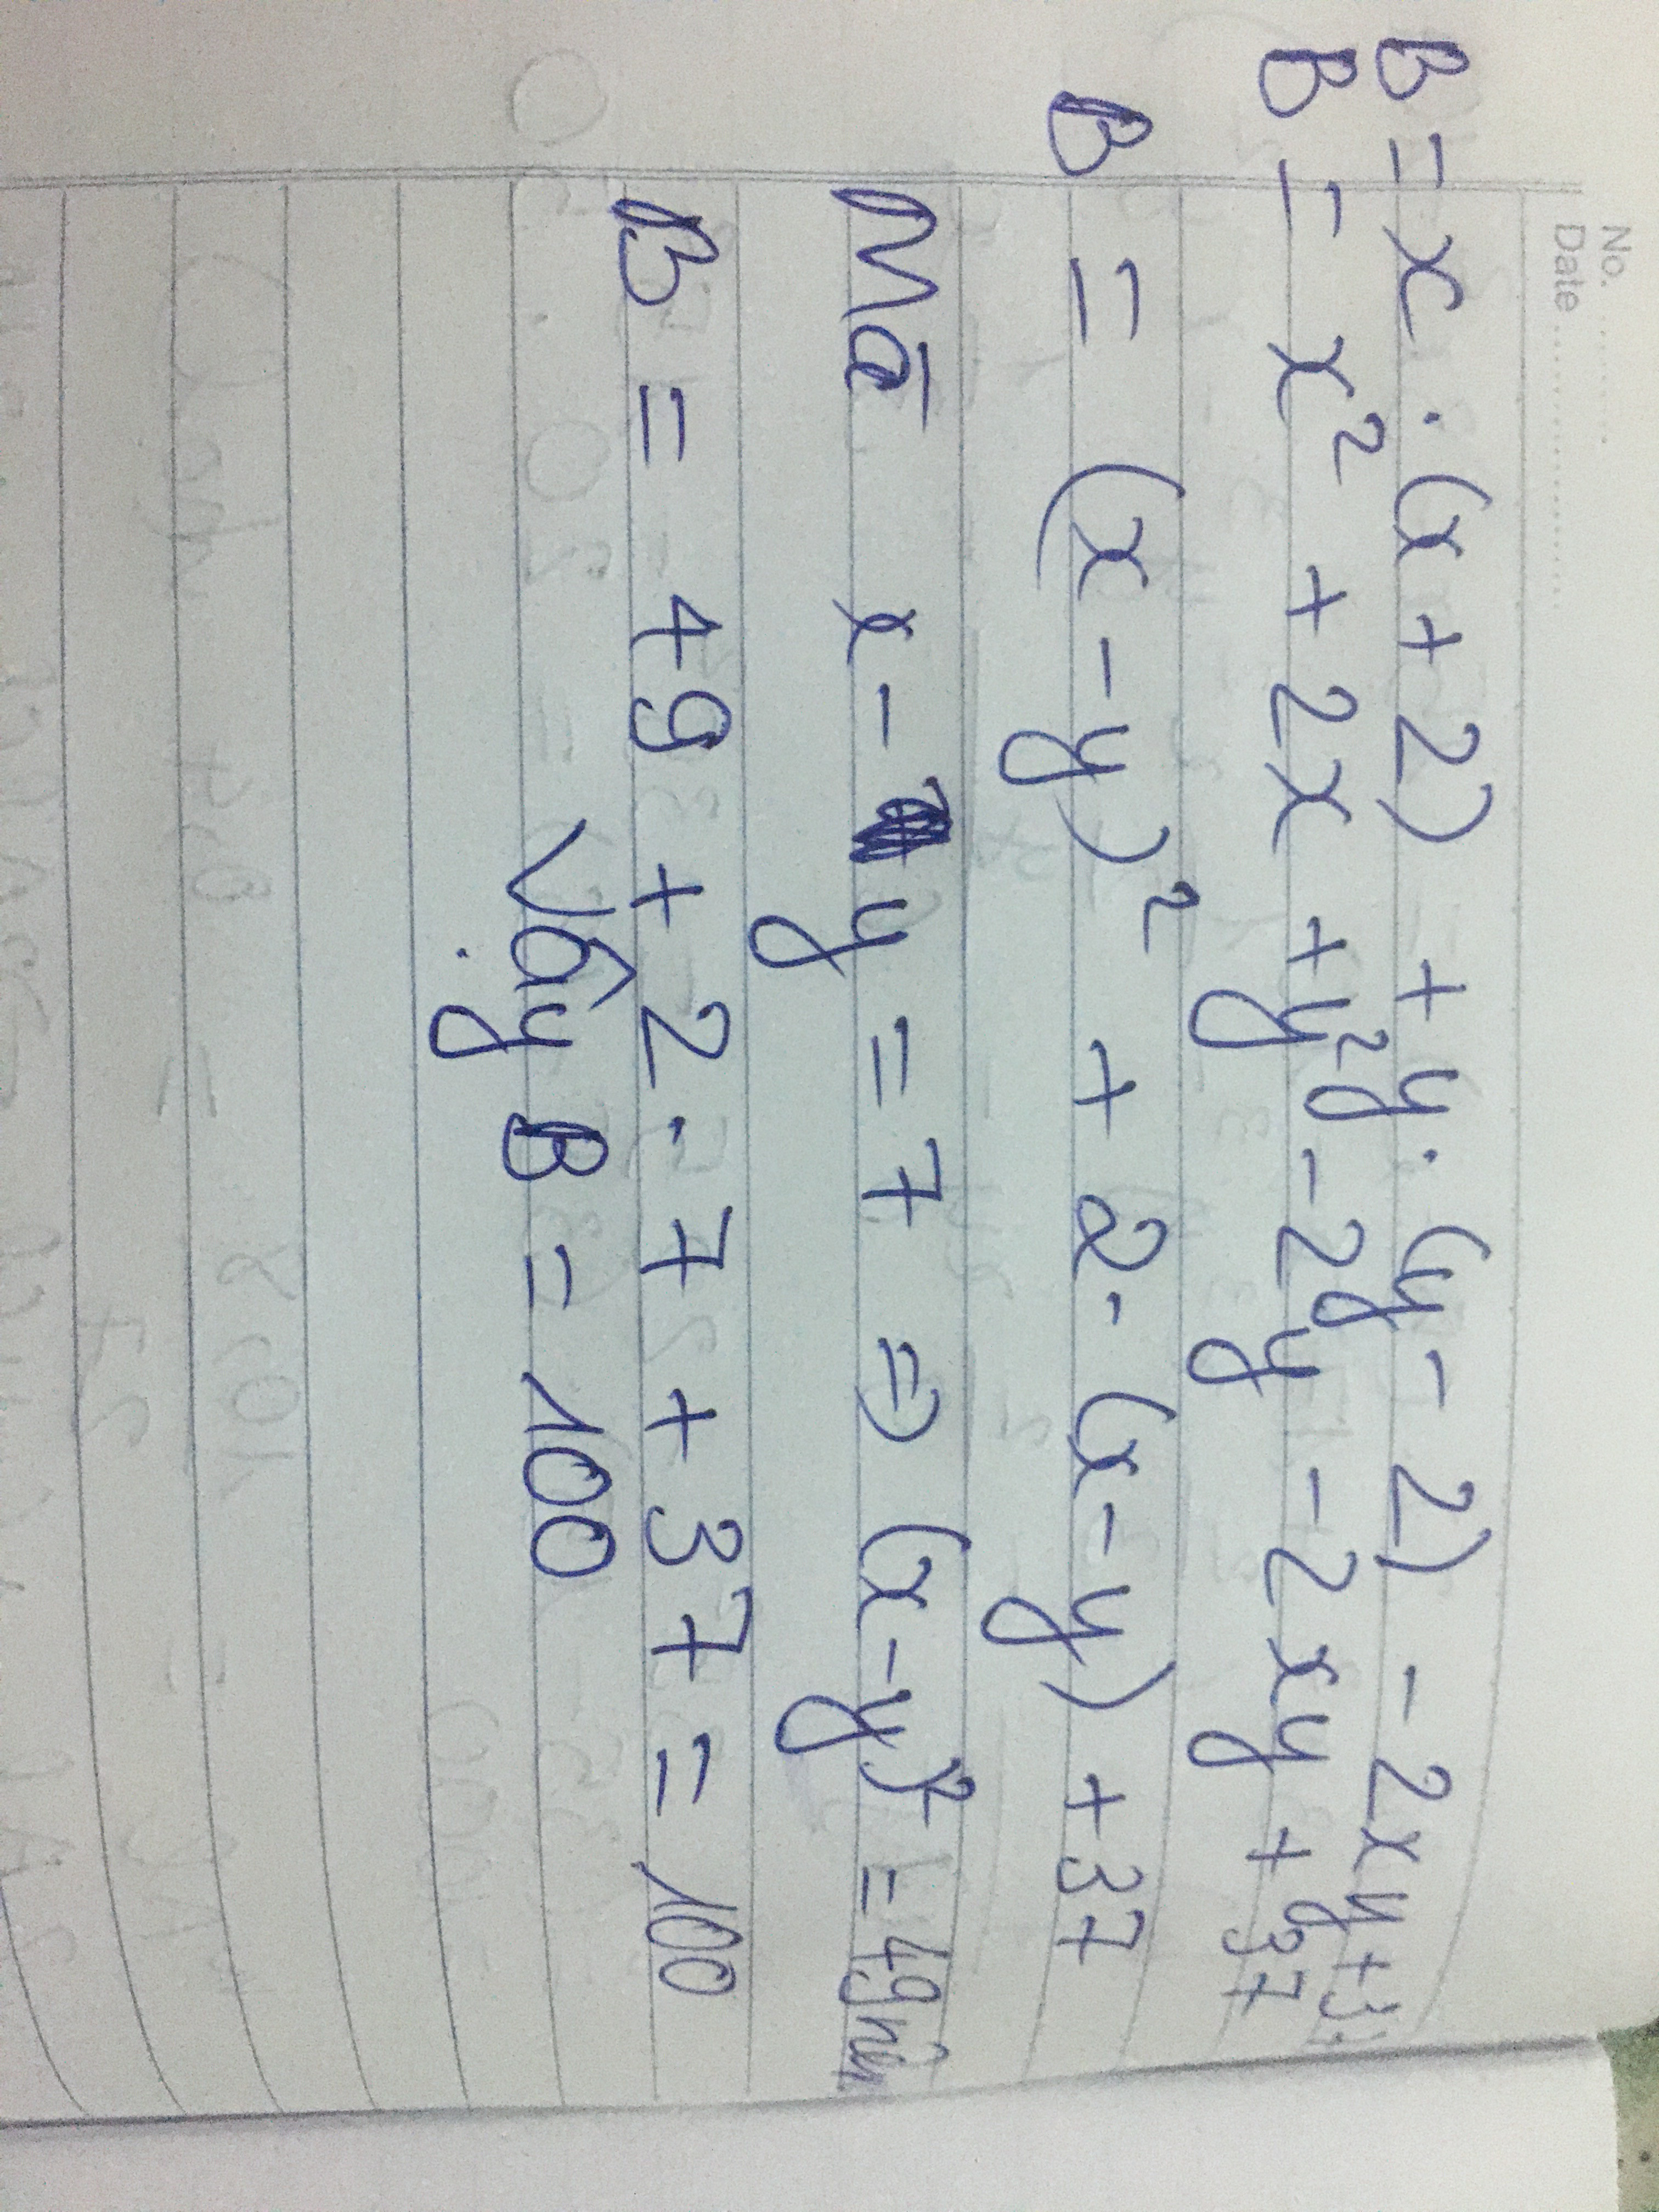 No.
Date
B = x . (x + 2) + y . (y - 2) - 2xy + 37
B = x² + 2x + y² - 2y - 2xy + 37
B = (x - y)² + 2 . (x - y) + 37
Mà x - y = 7 => (x - y)² = 49 nên
B = 49 + 2 . 7 + 37 = 100
Vậy B = 100